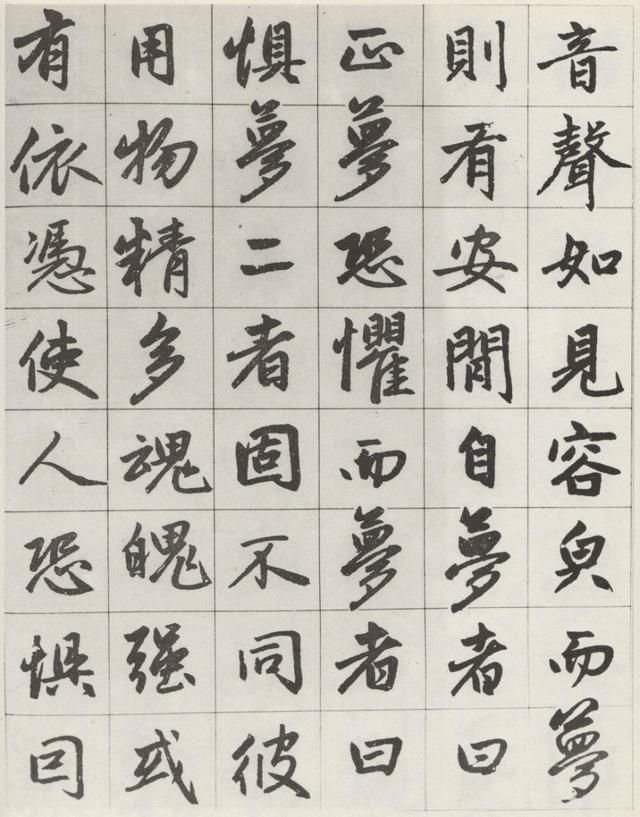 音聲如見容皃而夢
則有安閒自夢者曰
正夢恐懼而夢者曰
惧夢二者固不同彼
用物精多魂魄强或
有依憑使人恐惧曰